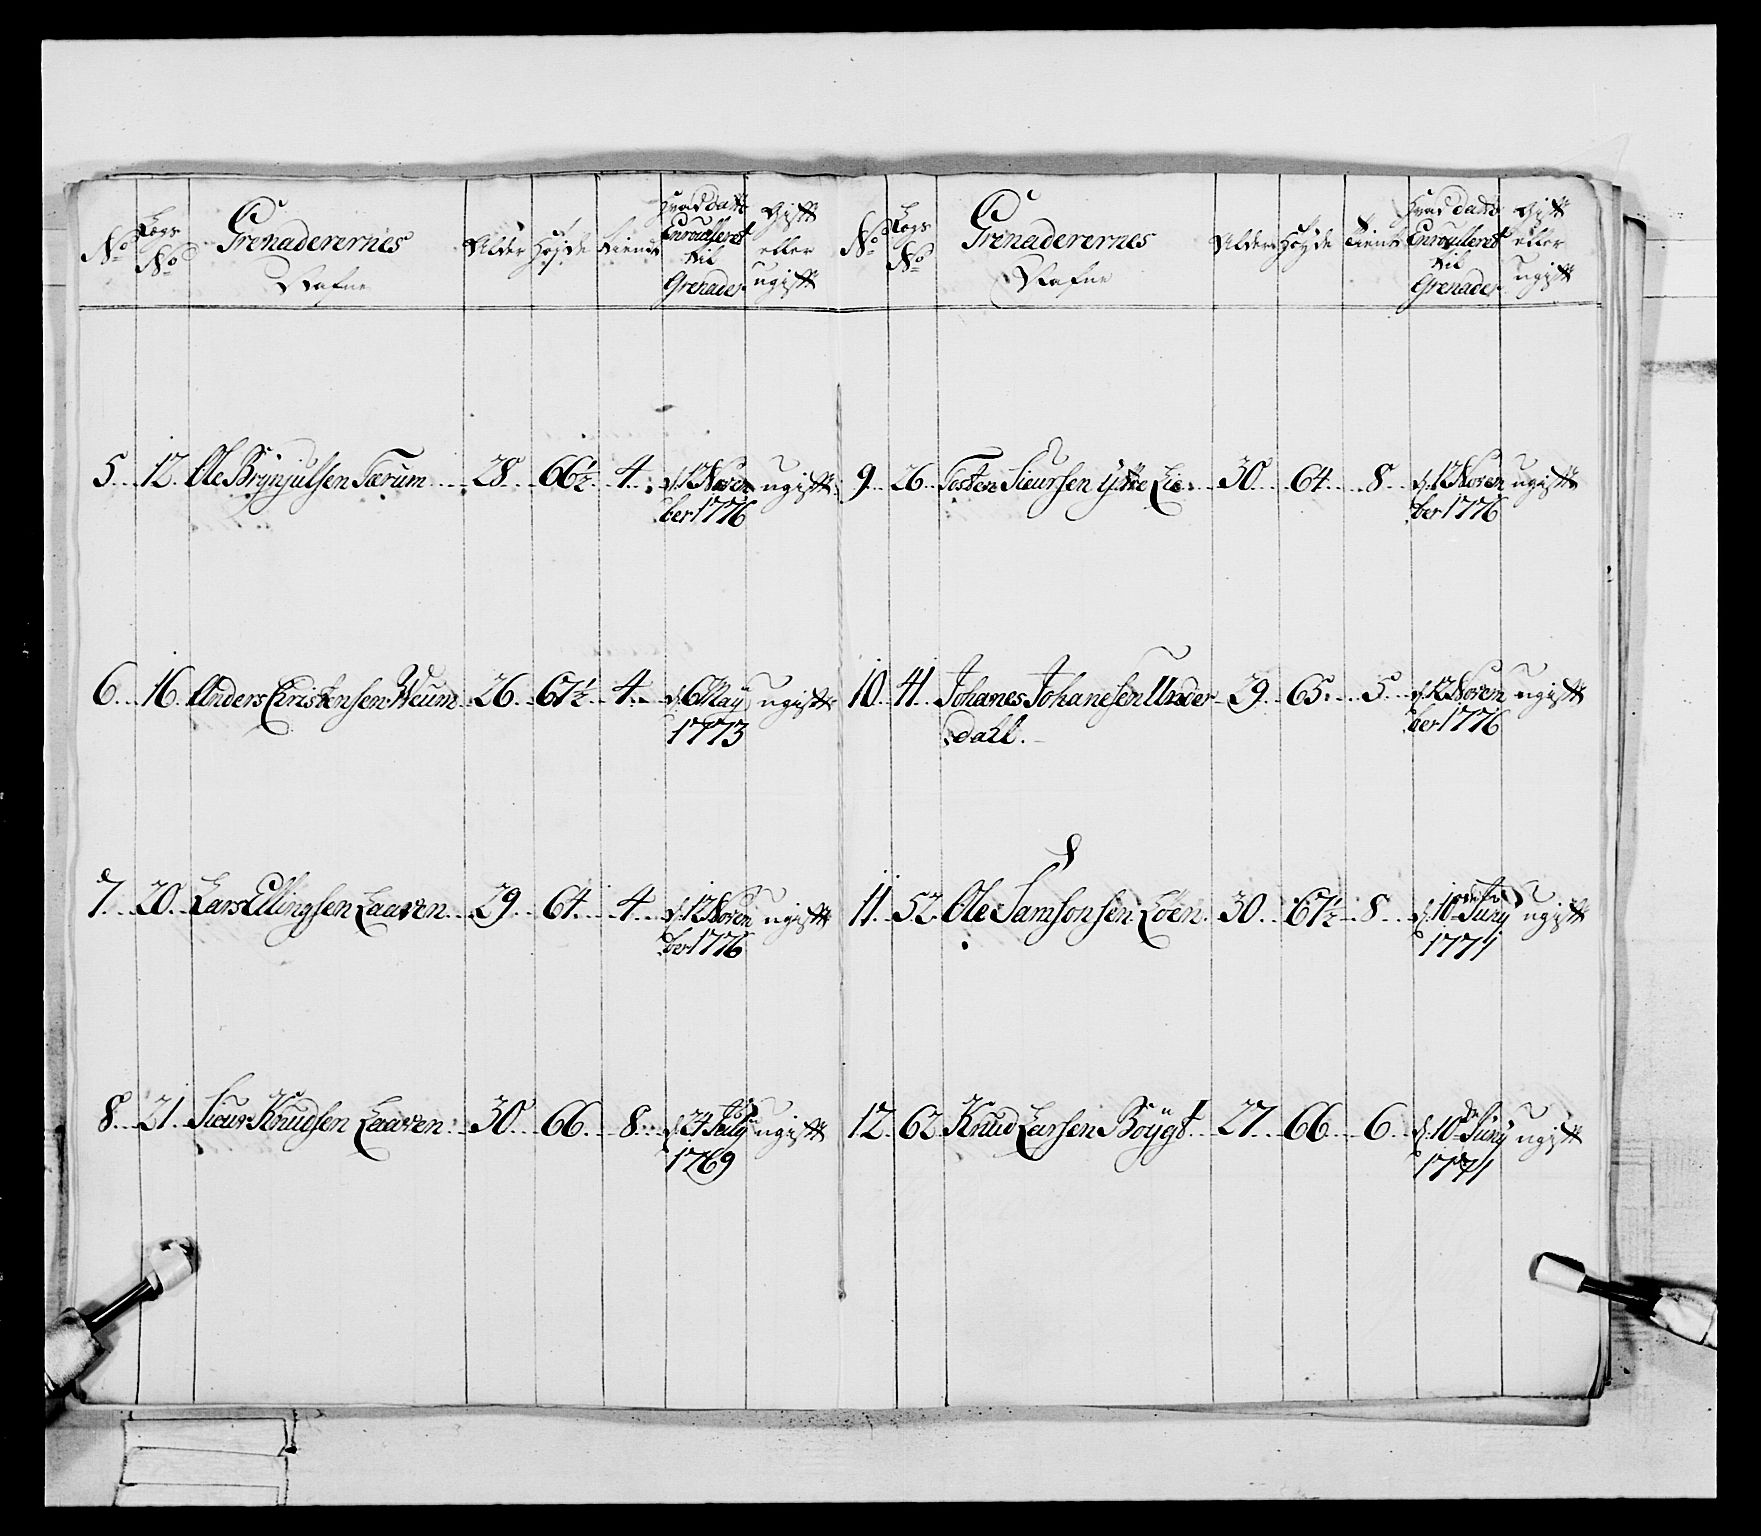 No Lægs No Grenaderernes Nafne Alder Høyde Tient Hvad dato Enroulleret til Grenader Gift eller ugift
5 12 Ole Brynjulsen Færum 28 66½ 4 d: 12 Novem ugift
ber 1776
6 16 Anders Christensen Weum 26 67½ 4 d: 6 May ugift
1773
7 20 Lars Ellingsen Laaven 29 64 4 d: 12 Novem ugift
ber 1776
8 21 Siur Knudsen Laaven 30 66 8 d: 24 July ugift
1769
No Lægs No Grenaderernes Nafne Alder Høyde Tient Hvad dato Enroulleret til Grenader Gift eller ugift
9 26 Tosten Siursen Ytre Lie 30 64 8 d: 12 Novem ugift
ber 1776
10 41 Johanes Johanesen Under 29 65 5 d: 12 Novem ugift
dahl
ber 1776
11 52 Ole Samsonsen Loen 30 67½ 8 d: 10 Juny ugift
1771
12 62 Knud Larsen Böygt 27 66 6 d: 10 Juny ugift
1771